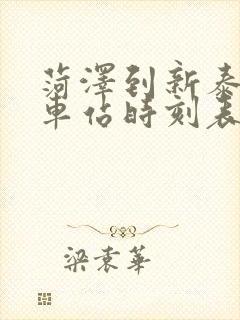 菏澤到新泰
車站時刻表
梁袁華